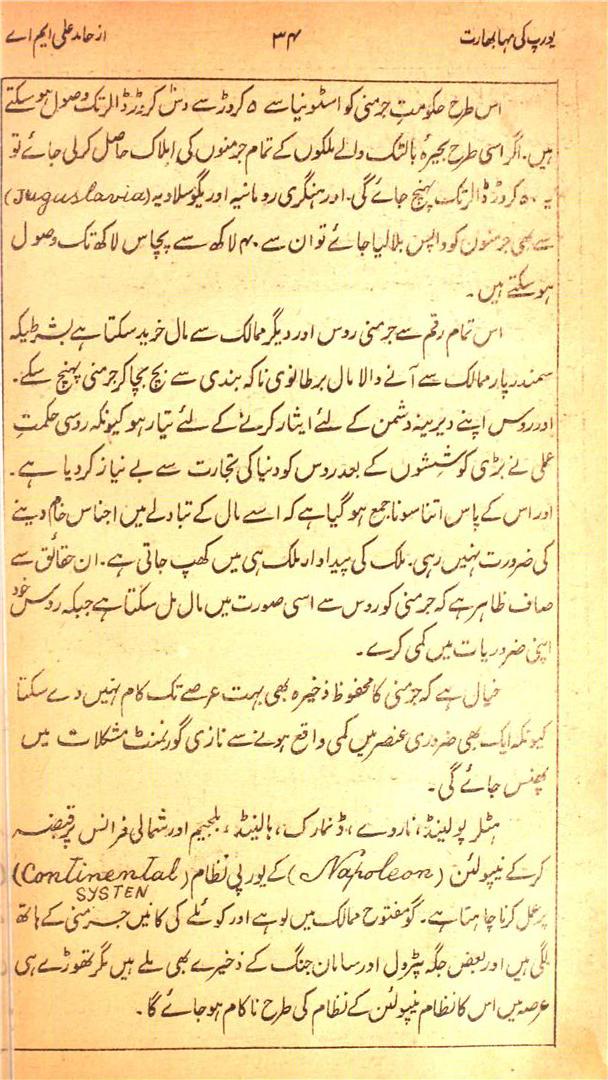 یورپ کی مہابھارت ۳۴ از حامد علی ایم اے
اس طرح حکومتِ جرمنی کو اسٹونیا سے ۵ کروڑ سے دس کروڑ ڈالر تک وصول ہو سکتے
ہیں۔ اگر اسی طرح بحیرۂ بالٹک والے ملکوں کے تمام جرمنوں کی املاک حاصل کرلی جائے تو
یہ ۵۰ کروڑ ڈالر تک پہنچ جائے گی۔ اور ہنگری رومانیہ اور یگوسلاویہ (Juguslavia)
سے بھی جرمنوں کو واپس بلالیا جائے تو ان سے ۴۰ لاکھ سے پچاس لاکھ تک وصول
ہوسکتے ہیں۔
اس تمام رقم سے جرمنی روس اور دیگر ممالک سے مال خرید سکتا ہے بشرطیکہ
سمندر پار ممالک سے آنے والا مال برطانوی ناکہ بندی سے بچ بچا کر جرمنی پہنچ سکے۔
اور روس اپنے دیرینہ دشمن کے لئے ایثار کرنے کے لئے تیار ہو کیونکہ روسی حکمتِ
عملی نے بڑی کوششوں کے بعد روس کو دنیا کی تجارت سے بے نیاز کردیا ہے۔
اور اس کے پاس اتنا سونا جمع ہو گیا ہے کہ اسے مال کے تبادلے میں اجناس خام دینے
کی ضرورت نہیں رہی۔ ملک کی پیداوار ملک ہی میں کھپ جاتی ہے۔ ان حقائق سے
صاف ظاہر ہے کہ جرمنی کو روس سے اسی صورت میں مال مل سکتا ہے جبکہ روس خود
اپنی ضروریات میں کمی کرے۔
خیال ہے کہ جرمنی کا محفوظ ذخیرہ بھی بہت عرصے تک کام نہیں دے سکتا
کیونکہ ایک بھی ضروری عنصر میں کمی واقع ہونے سے نازی گورنمنٹ مشکلات میں
پھنس جائے گی۔
ہٹلر پولینڈ، ناروے، ڈنمارک، ہالینڈ، بلجیم اور شمالی فرانس پر قبضہ
کرکے نیپولئن (Napoleon) کے یورپی نظام (Continental SYSTEN)
پر عمل کرنا چاہتا ہے۔ گو مفتوح ممالک میں لوہے اور کوئلے کی کانیں جرمنی کے ہاتھ
لگی ہیں اور بعض جگہ پٹرول اور سامان جنگ کے ذخیرے بھی ملے ہیں مگر تھوڑے ہی
عرصہ میں اس کا نظام نیپولئن کے نظام کی طرح ناکام ہوجائے گا۔